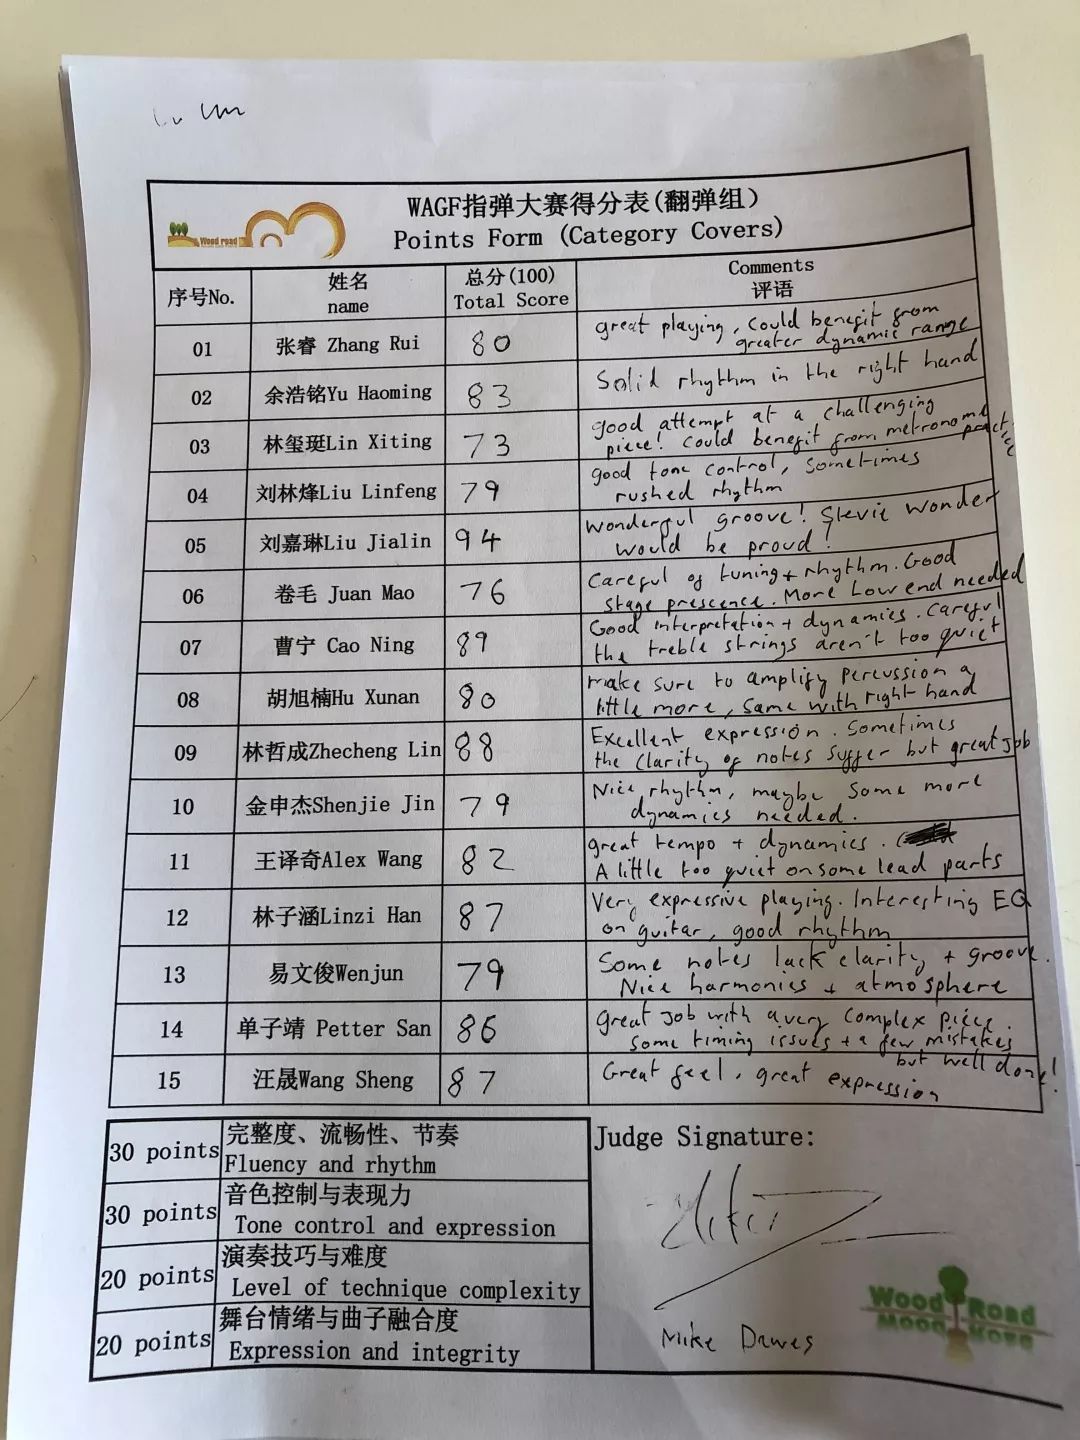 WAGF指弹大赛得分表(翻弹组)
Wood road
Points Form (Category Covers)
序号No. 姓名 name 总分(100) Total Score Comments 评语
01 张睿 Zhang Rui 80 great playing, could benefit from
greater dynamic range
02 余浩铭Yu Haoming 83 Solid rhythm in the right hand
03 林玺珽Lin Xiting 73 good attempt at a challenging
piece! Could benefit from metronome practice
04 刘林烽Liu Linfeng 79 good tone control, sometimes
rushed rhythm
05 刘嘉琳Liu Jialin 94 Wonderful groove! Stevie Wonder
would be proud!
06 卷毛 Juan Mao 76 Careful of tuning + rhythm. Good
stage prescence. More Low end needed
07 曹宁 Cao Ning 89 Good interpretation + dynamics. Careful
the treble strings aren't too quiet
08 胡旭楠Hu Xunan 80 make sure to amplify percussion a
little more, same with right hand
09 林哲成Zhecheng Lin 88 Excellent expression. Sometimes
the clarity of notes suffer but great job
10 金申杰Shenjie Jin 79 Nice rhythm, maybe some more
dynamics needed.
11 王译奇Alex Wang 82 great tempo + dynamics.
A little too quiet on some lead parts
12 林子涵Linzi Han 87 Very expressive playing. Interesting EQ
on guitar, good rhythm
13 易文俊Wenjun 79 Some notes lack clarity + groove.
Nice harmonics + atmosphere
14 单子靖 Petter San 86 Great job with a very complex piece.
Some timing issues + a few mistakes
but well done!
15 汪晟Wang Sheng 87 Great feel, great expression
30 points 完整度、流畅性、节奏
Fluency and rhythm
30 points 音色控制与表现力
Tone control and expression
20 points 演奏技巧与难度
Level of technique complexity
20 points 舞台情绪与曲子融合度
Expression and integrity
Judge Signature:
Mike Dawes
Wood Road